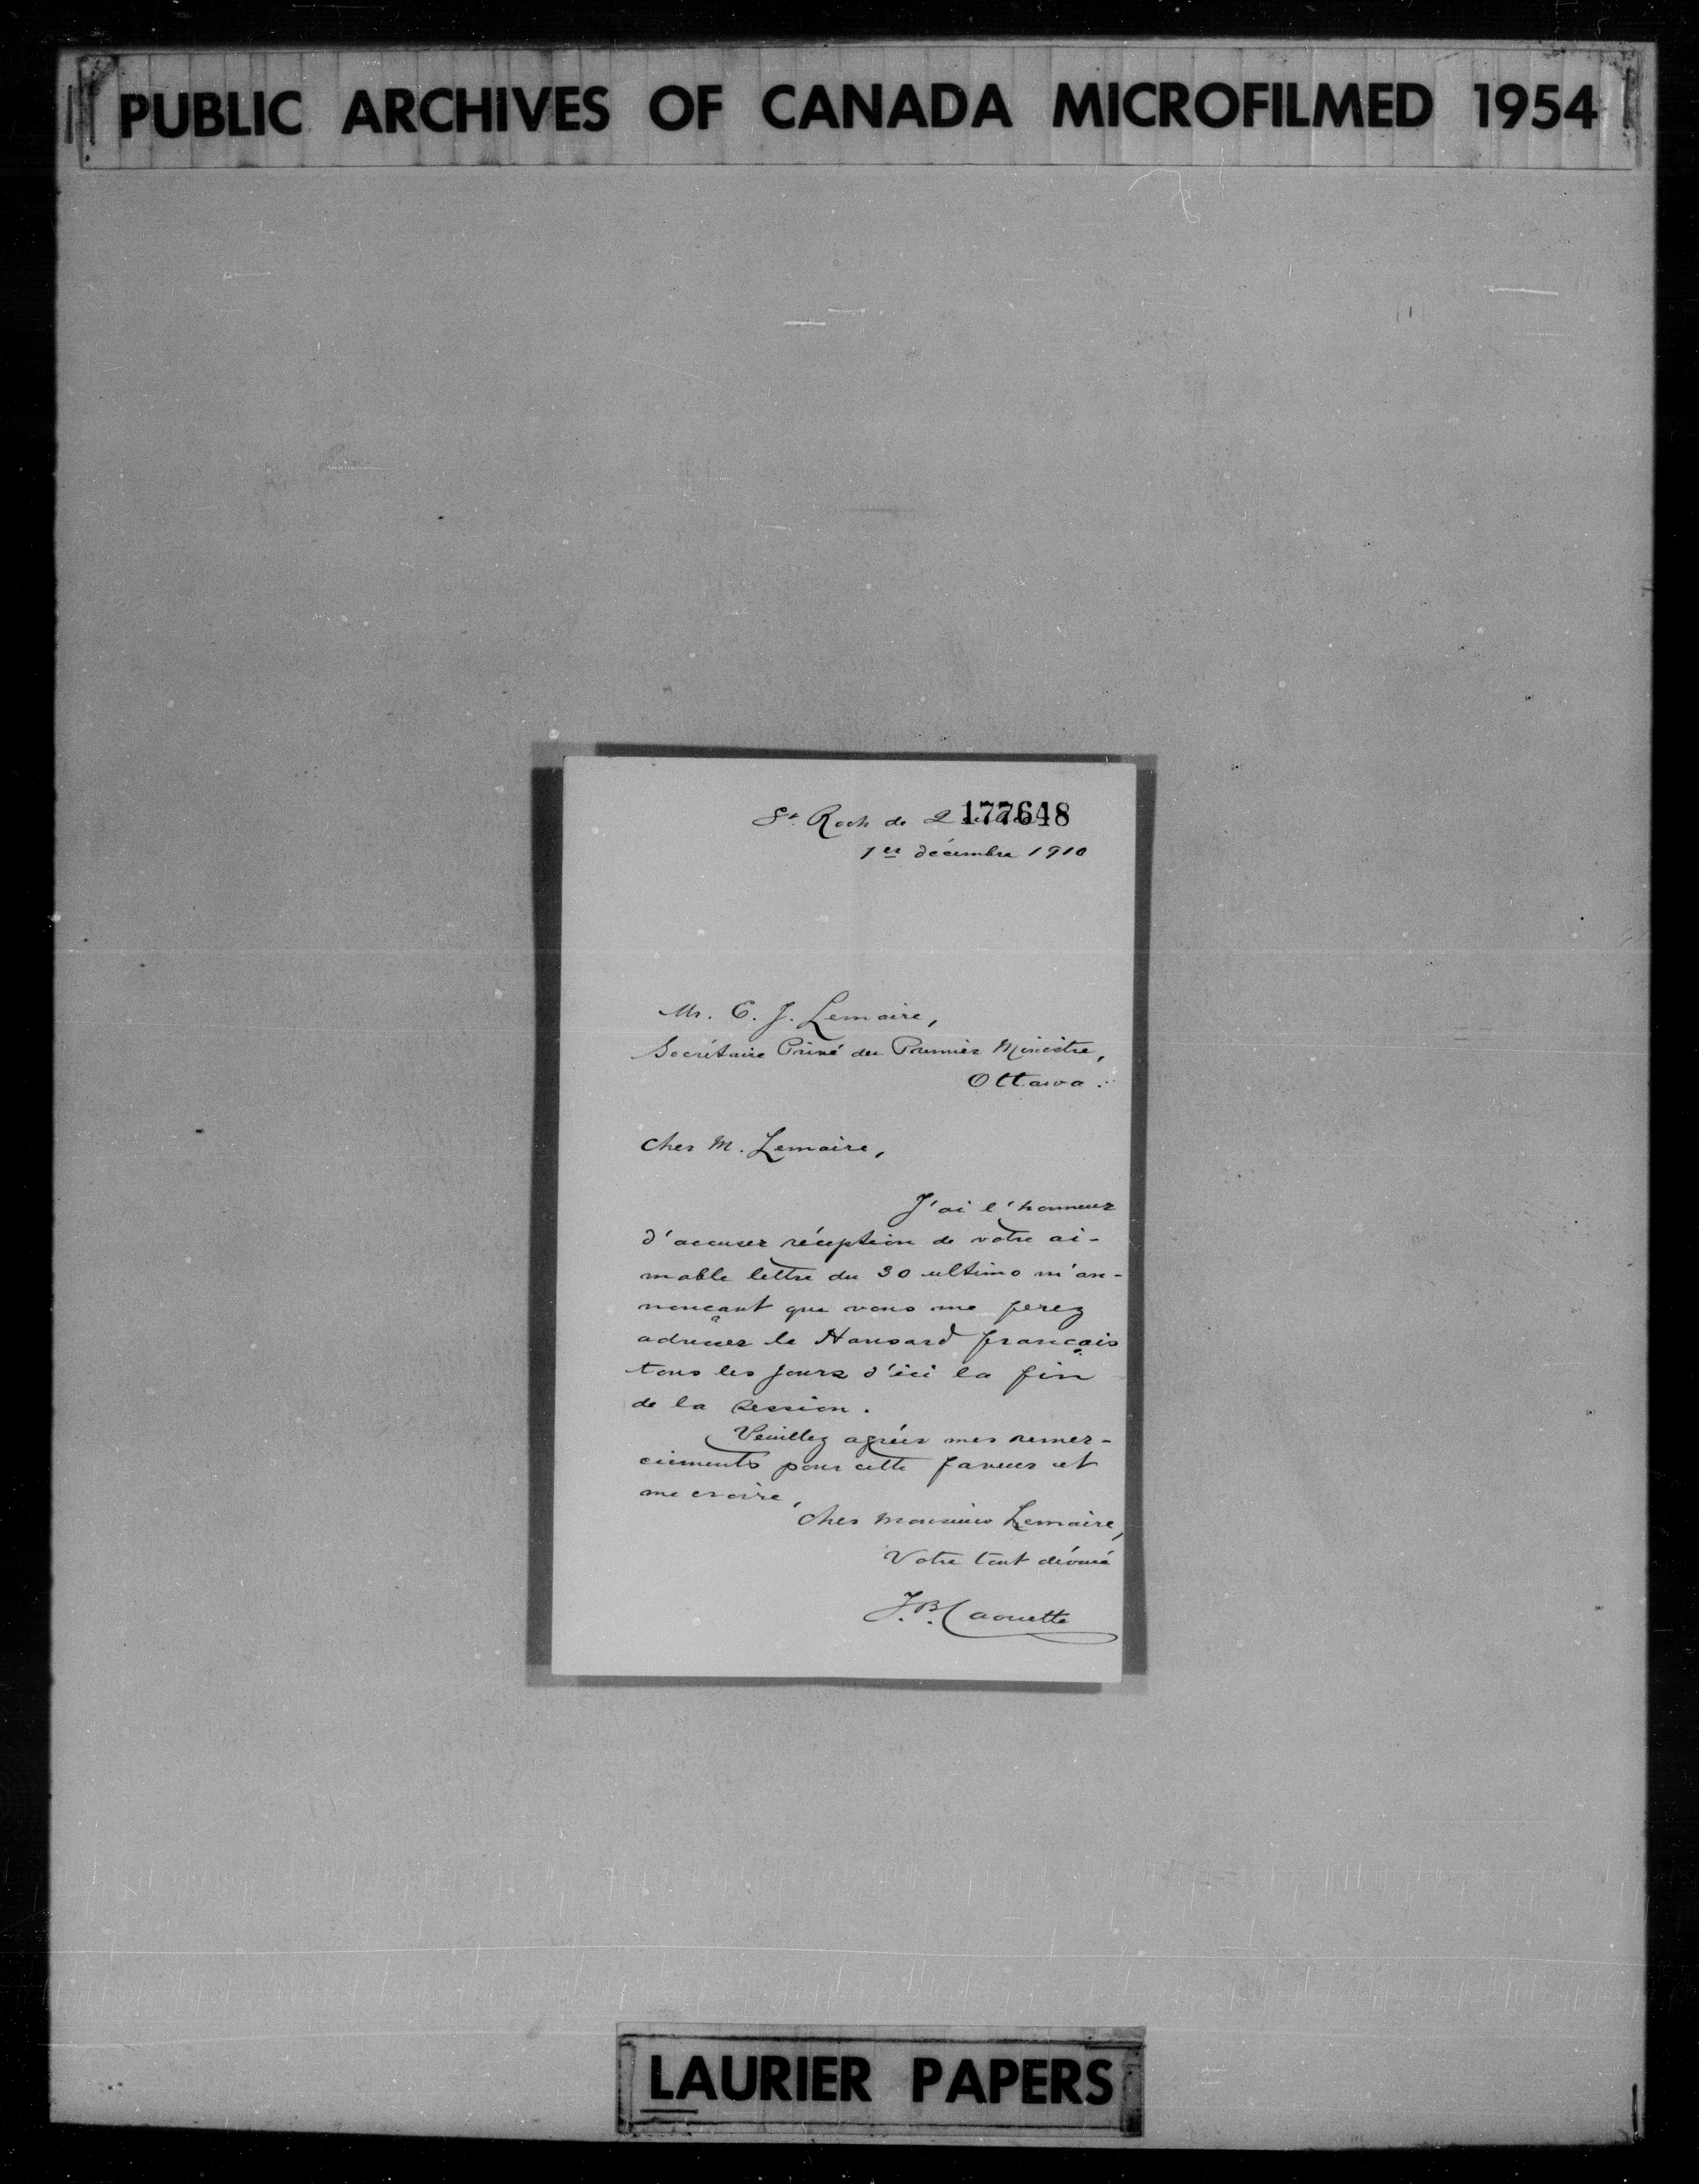 PUBLIC ARCHIVES OF CANADA MICROFILMED 1954
St. Roch de 177648
1er décembre 1910
Mr. E. J. Lemaire,
Secrétaire Privé du Premier Ministre,
Ottawa.
Cher M. Lemaire,
J'ai l'honneur
d'accuser réception de votre ai-
mable lettre du 30 ultimo m'an-
nonçant que vous me ferez
adresser le Hansard français
tous les jours d'ici la fin
de la session.
Veuillez agréer mes remer-
ciements pour cette faveur et
me croire,
Cher Monsieur Lemaire,
Votre tout dévoué
J.B. Caouette
LAURIER PAPERS